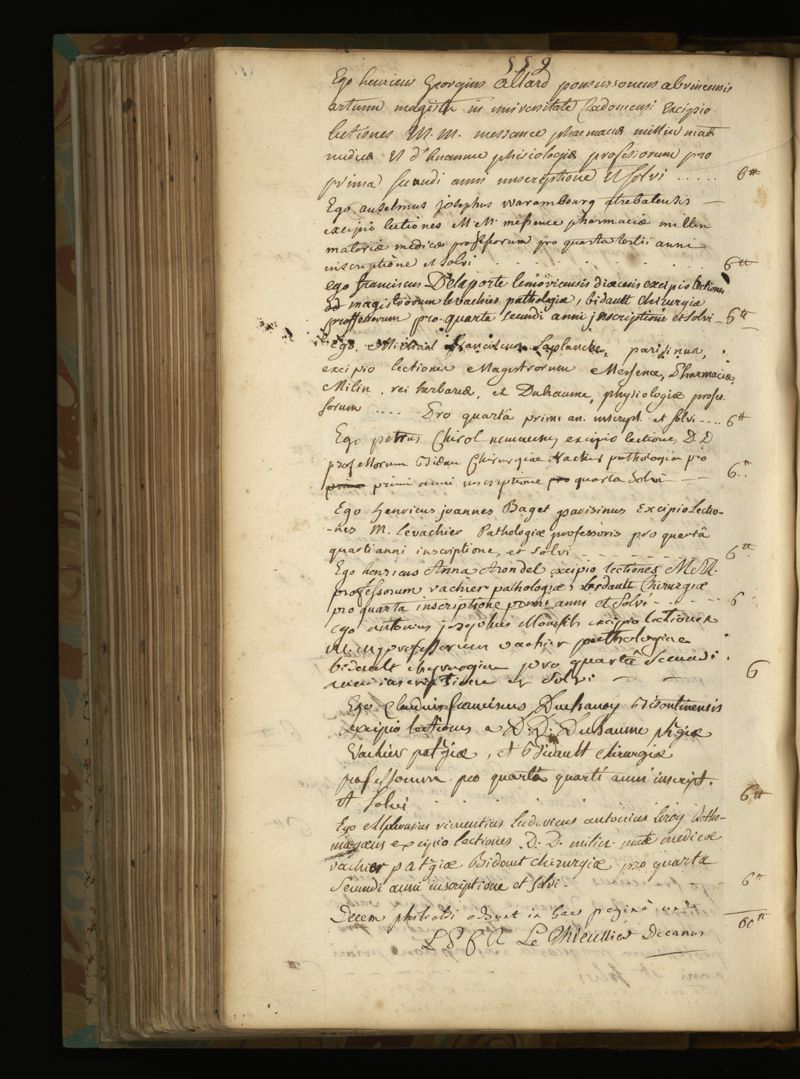 559
Ego henricus Georgius allard abrincensis
artium magister in universitate Cadomensi Excipio
lectiones M. M. messence pharmaciæ millin mat
medicæ et d'huaume phisiologiæ professorum pro
prima secundi anni inscriptione Et solvi ..... 6tt
Ego anselmus josephus warambourg atrebatensis
excipio lectiones M. M. messence pharmaciæ millin
materiæ medicæ professorum pro quarta tertii anni
inscriptione et solvi . . . . . 6tt
ego franciscus Delaporte lemovicensis diœcesis excipio lectiones
magistrorum levachier pathologiæ, bidault chirurgiæ
professorum pro quarta secundi anni inscriptione et solvi - 6tt
Ego Franciscus Laplanche, parisinus,
excipio lectiones Magistrorum Messence, Pharmaciæ,
Milin, rei herbariæ, et Duhaume, physiologiæ profes-
sorum .... Pro quartâ primi an. inscript. et solvi .... 6tt
Ego petrus Chirol excipio lectiones D. D
professorum Bidau Chirurgiæ vachier pathologiæ pro
primi anni inscriptione quarta Solvi — 6tt
Ego Henricus joannes Baget parisinus Excipio Lectio-
-nes M. levachier Pathologiæ professoris pro quartâ
quarti anni inscriptione, et solvi - - - 6tt
Ego henricus Anna Arondel excipio lectiones MM.
professorum vachier pathologiæ, bidault Chirurgiæ
pro quarta inscriptione primi anni et Solvi - - - 6
ego antonius josephus excipio lectiones
M. M professorum vachier pathologiæ
bidault chyrurgiæ pro quartâ secundi
anni inscriptione et solvi — 6
Ego Claudius franciscus Duchanoy Bisontinensis
excipio lectiones a D. D. Duhaume phgiæ
Vachier patgiæ, et Bidault chirurgiæ
professorum pro quartâ quarti anni inscript.
et solvi . . . . . 6tt
Ego vincentius ludovicus antonius leroy Rotho-
magæus excipio lectiones D. D. milin mat medicæ
vachier patgiæ Bidault chirurgiæ pro quarta
secundi anni inscriptione et solvi. 6tt
Decem philiatri adsunt in hac paginâ 60tt
Le Thieullier Decanus